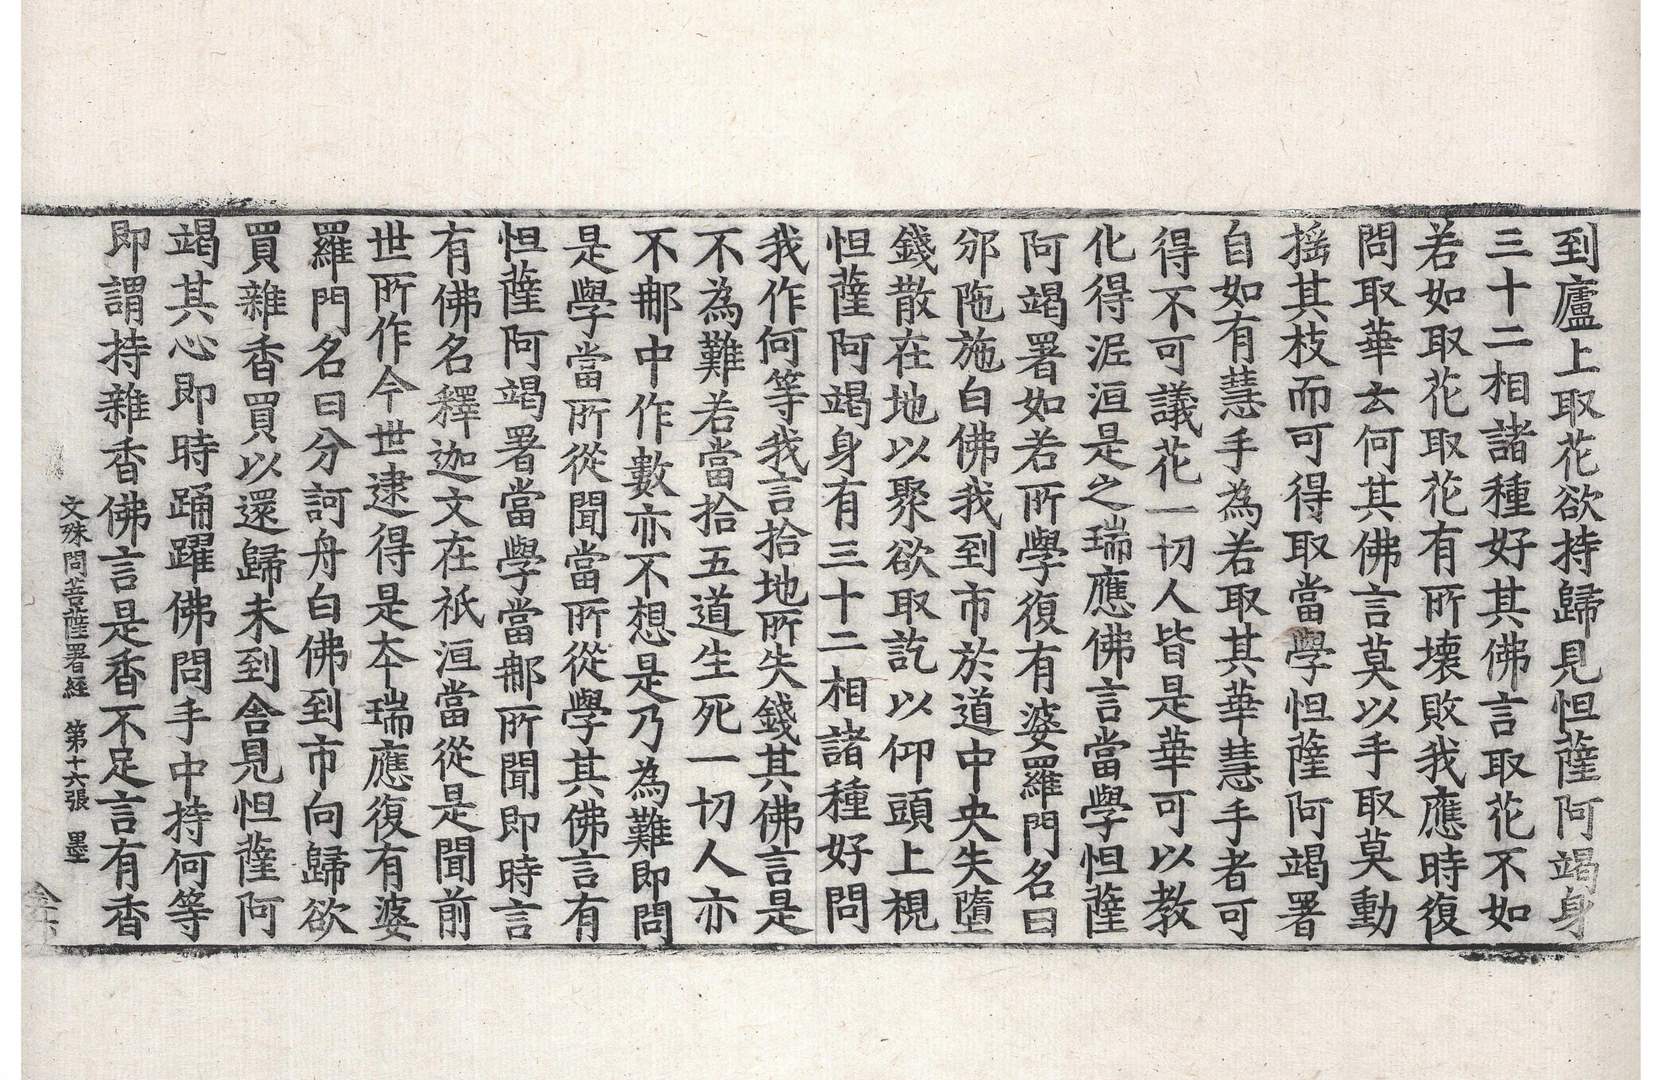 到廬上取花欲持歸見怛薩阿竭身
三十二相諸種好其佛言取花不如
若如取花取花有所壞敗我應時復
問取華去何其佛言莫以手取莫動
搖其枝而可得取當學怛薩阿竭署
自如有慧手為若取其華慧手者可
得不可議花一切人皆是華可以教
化得泥洹是之瑞應佛言當學怛薩
阿竭署如若所學復有婆羅門名曰
邠陁施白佛我到市於道中央失墮
錢散在地以聚欲取訖以仰頭上視
怛薩阿竭身有三十二相諸種好問
我作何等我言拾地所失錢其佛言是
不為難若當拾五道生死一切人亦
不那中作數亦不想是乃為難即問
是學當所從聞當所從學其佛言有
怛薩阿竭署當學當那所聞即時言
有佛名釋迦文在祇洹當從是聞前
世所作今世逮得是本瑞應復有婆
羅門名曰分訶舟白佛到市向歸欲
買雜香買以還歸未到舍見怛薩阿
竭其心即時踊躍佛問手中持何等
即謂持雜香佛言是香不足言有香
文殊問菩薩署經 第十六張 墨